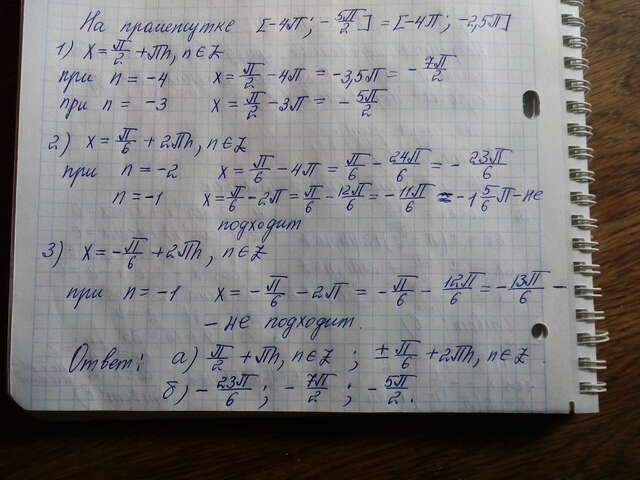 На промежутке [-4π; -5π/2] = [-4π; -2,5π]
1) x = π/2 + πn, n∈Z
при n = -4 x = π/2 - 4π = -3,5π = -7π/2
при n = -3 x = π/2 - 3π = -5π/2
2) x = π/6 + 2πn, n∈Z
при n = -2 x = π/6 - 4π = π/6 - 24π/6 = -23π/6
n = -1 x = π/6 - 2π = π/6 - 12π/6 = -11π/6 = -1 5/6 π - не
подходит
3) x = -π/6 + 2πn, n∈Z
при n = -1 x = -π/6 - 2π = -π/6 - 12π/6 = -13π/6 -
- не подходит.
Ответ: а) π/2 + πn, n∈Z ; ±π/6 + 2πn, n∈Z.
б) -23π/6; -7π/2; -5π/2.